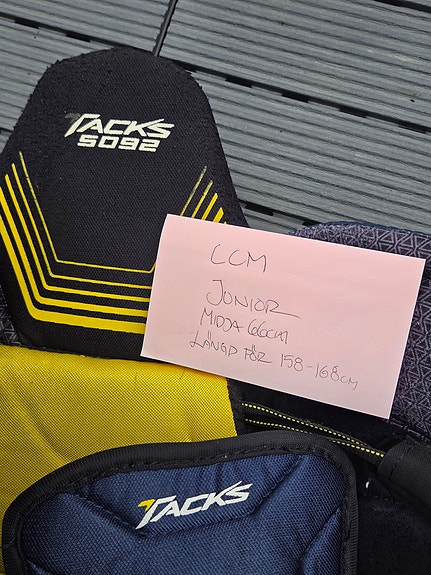 TACKS
5092
CCM
JUNIOR
MIDJA 66CM
LÄNGD FÖR 158-168cm
TACKS